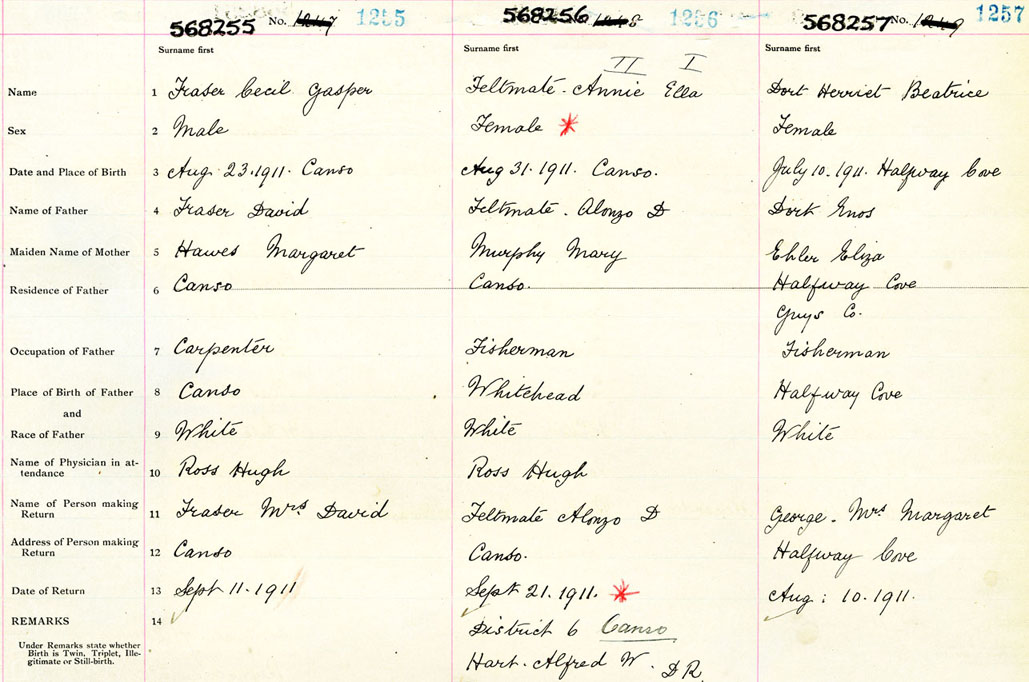 568255 No. 1247 1255
568256 1248 1256
568257 No. 1249 1257
Surname first Surname first Surname first
II I
Name 1 Fraser Cecil Gasper Feltmate - Annie Ella Dort Herriet Beatrice
Sex 2 Male Female * Female
Date and Place of Birth 3 Aug. 23. 1911. Canso Aug 31. 1911. Canso. July 10. 1911. Halfway Cove
Name of Father 4 Fraser David Feltmate. Alonzo D Dort Enos
Maiden Name of Mother 5 Hawes Margaret Murphy Mary Ehler Eliza
Residence of Father 6 Canso Canso. Halfway Cove
Guys Co.
Occupation of Father 7 Carpenter Fisherman Fisherman
Place of Birth of Father 8 Canso Whitehead Halfway Cove
and
Race of Father 9 White White White
Name of Physician in at-
tendance 10 Ross Hugh Ross Hugh
Name of Person making
Return 11 Fraser Mrs David Feltmate Alonzo D George. Mrs Margaret
Address of Person making
Return 12 Canso Canso. Halfway Cove
Date of Return 13 Sept 11. 1911 Sept 21. 1911. * Aug: 10. 1911.
REMARKS 14
District 6 Canso
Under Remarks state whether
Birth is Twin, Triplet, Ille-
gitimate or Still-birth.
Hart. Alfred W. D R.